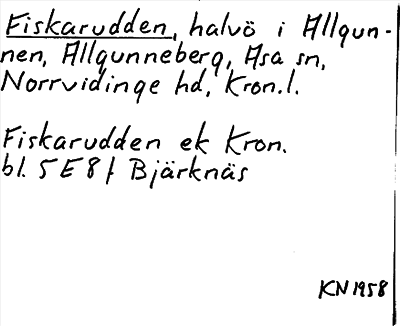 Fiskarudden, halvö i Allgun-
nen, Allgunneberg, Asa sn,
Norrvidinge hd, Kron.l.
Fiskarudden ek Kron.
bl. 5 E 8 f Bjärknäs
KN 1958